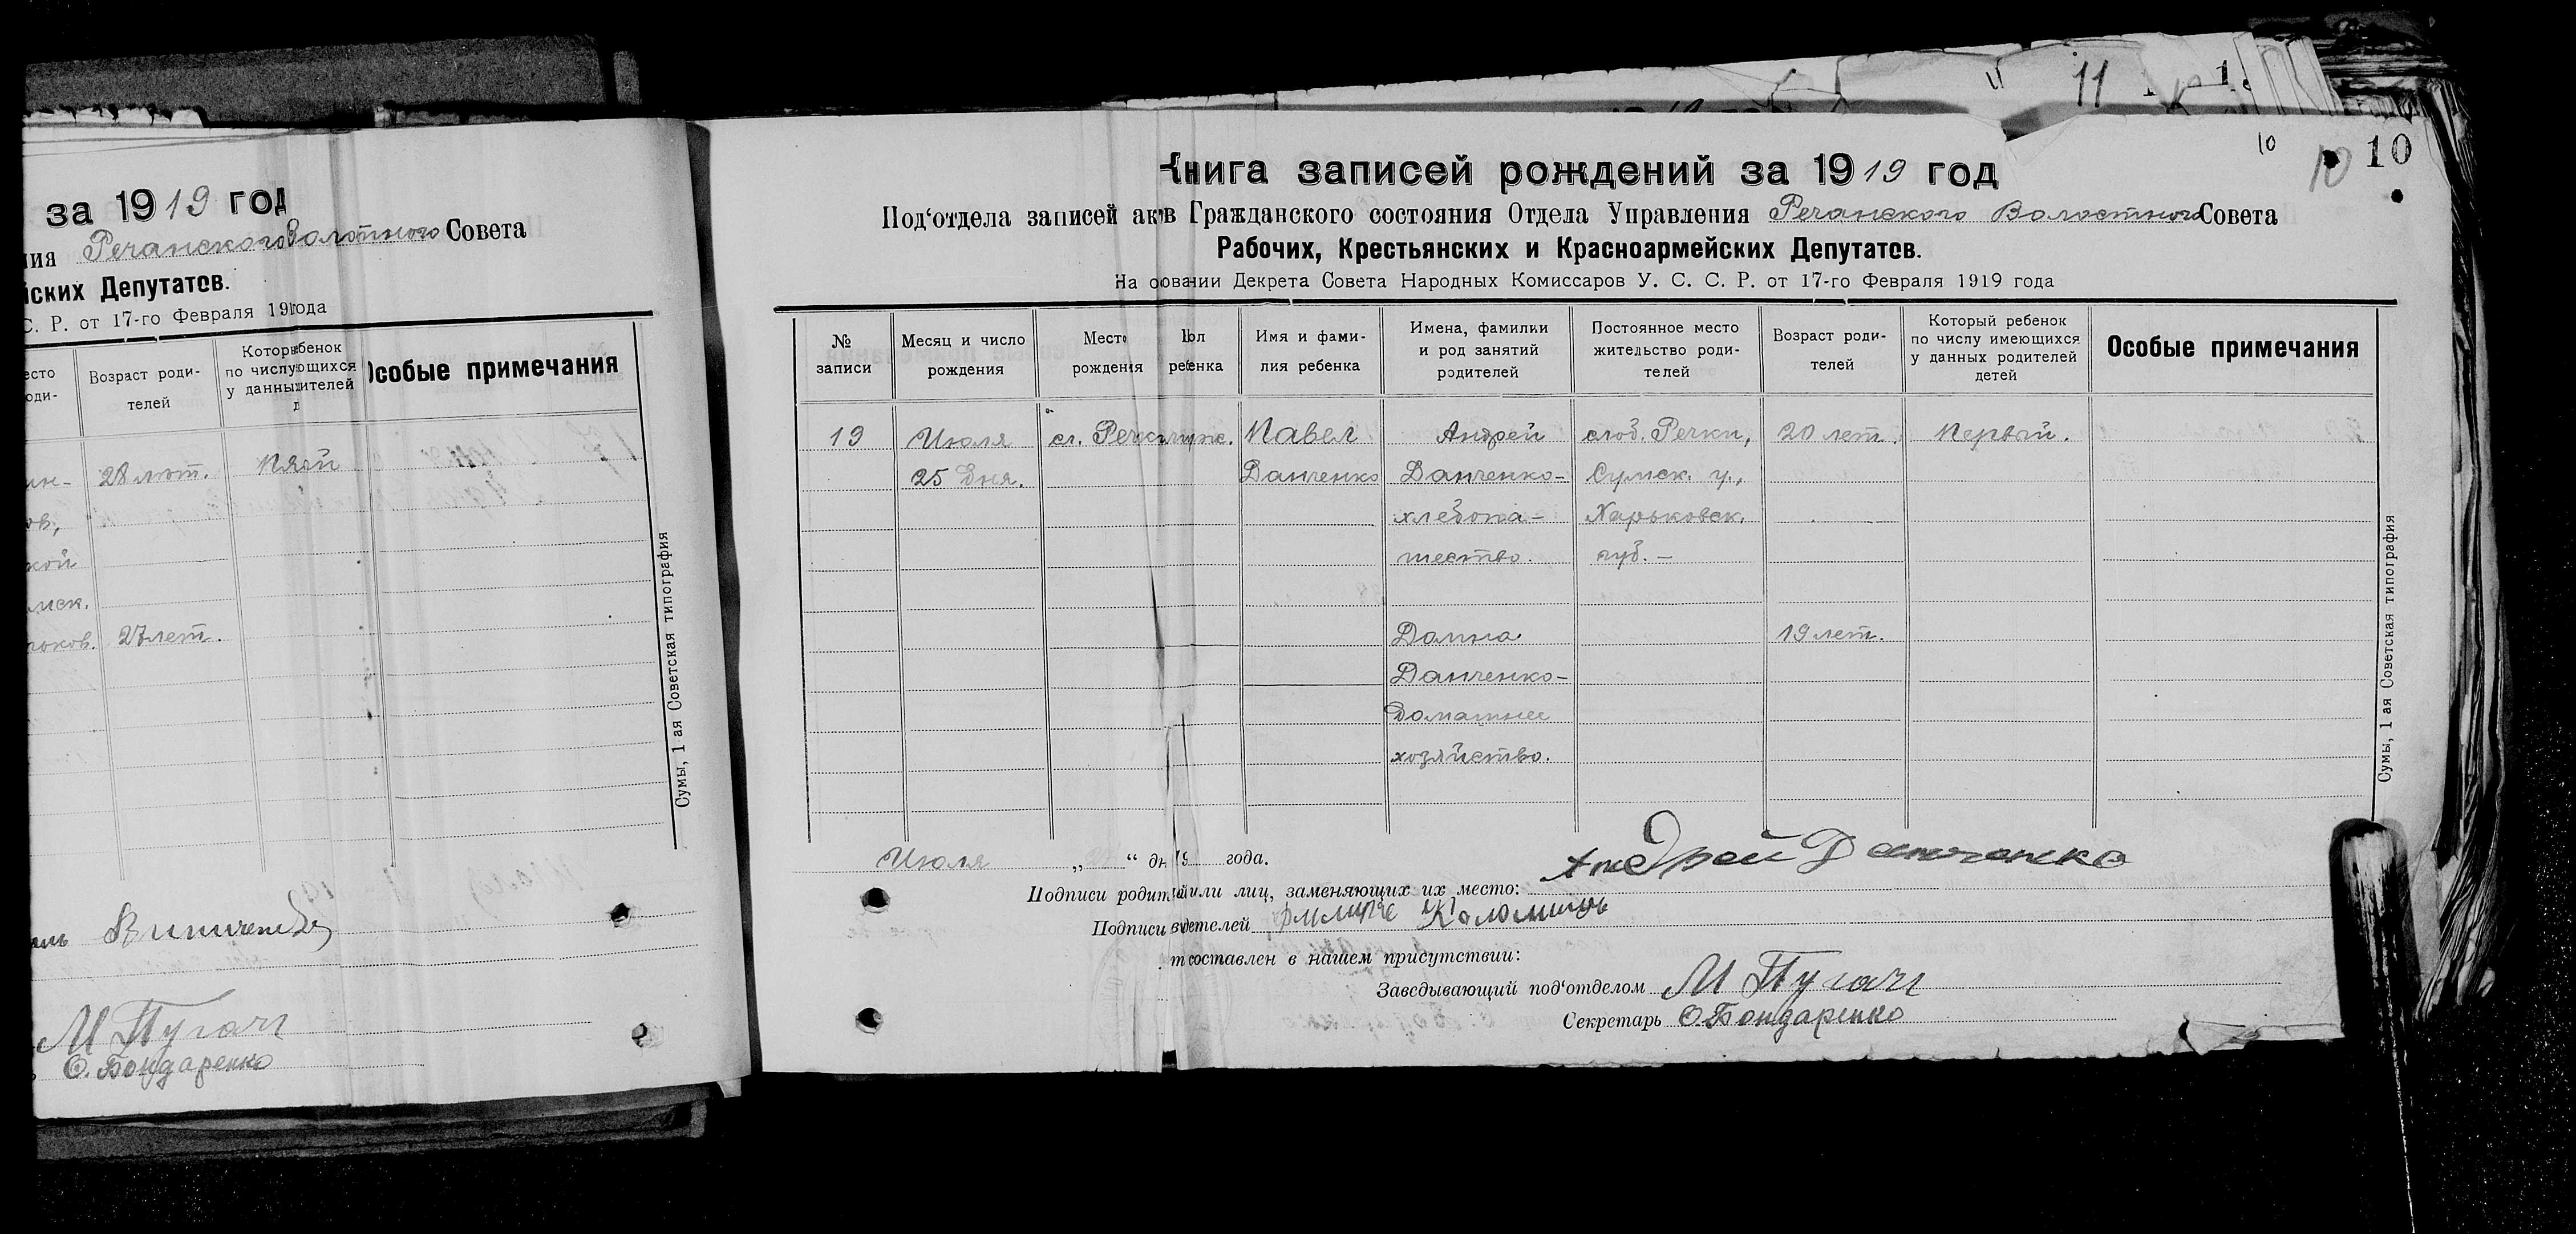 за 1919 год
ния Речанского Волостного Совета
йских Депутатов.
С. Р. от 17-го Февраля 191 года
есто
оди-
Возраст роди-
телей
Которы бенок
по числу ющихся
у данных ителей
д
Особые примечания
ин-
28 лет.
ов,
кой
мск.
рьков. 27 лет.
Сумы, 1 ая Советская типография
М Пугач
О. Бондаренко
11
10
10
10
Книга записей рождений за 1919 год
Под‘отдела записей актов Гражданского состояния Отдела Управления Речанского Волостного Совета
Рабочих, Крестьянских и Красноармейских Депутатов.
На основании Декрета Совета Народных Комиссаров У. С. С. Р. от 17-го Февраля 1919 года
№
записи
Месяц и число
рождения
Место
рождения
Пол
ребенка
Имя и фами-
лия ребенка
Имена, фамилии
и род занятий
родителей
Постоянное место
жительство роди-
телей
Возраст роди-
телей
Который ребенок
по числу имеющихся
у данных родителей
детей
Особые примечания
19 Июля сл. Речки муж. Павел Андрей слоб. Речки, 20 лет. Первый.
25 Дня. Данченко Данченко- Сумск. у.,
хлебопа- Харьковск.
шество. губ. —
Домна 19 лет.
Данченко-
Домашнее
хозяйство.
Сумы, 1 ая Советская типография
Июля „ “ дн 19 года.
Подписи родителей или лиц, заменяющих их место: Андрей Данченко
Подписи свидетелей
т составлен в нашем присутствии:
Заведывающий под‘отделом М Пугач
Секретарь О. Бондаренко